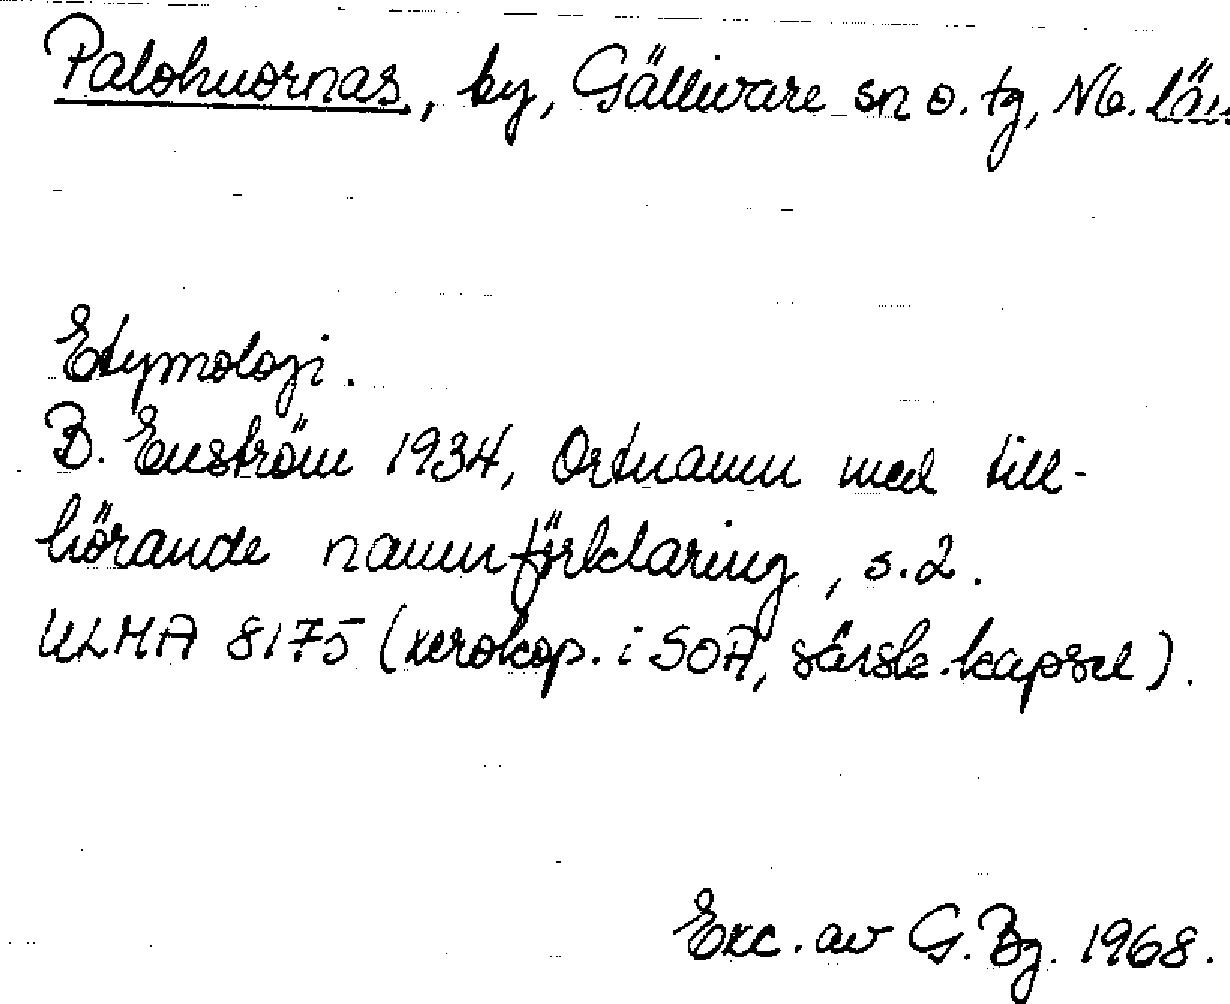 Palohuornas, by, Gällivare sn o. tg, Nb. län
Etymologi.
B. Enström 1934, Ortnamn med till-
hörande namnförklaring, s.2.
ULMA 8175 (xerokop. i SOA, särsk. kapsel).
Exc. av G. Bg. 1968.